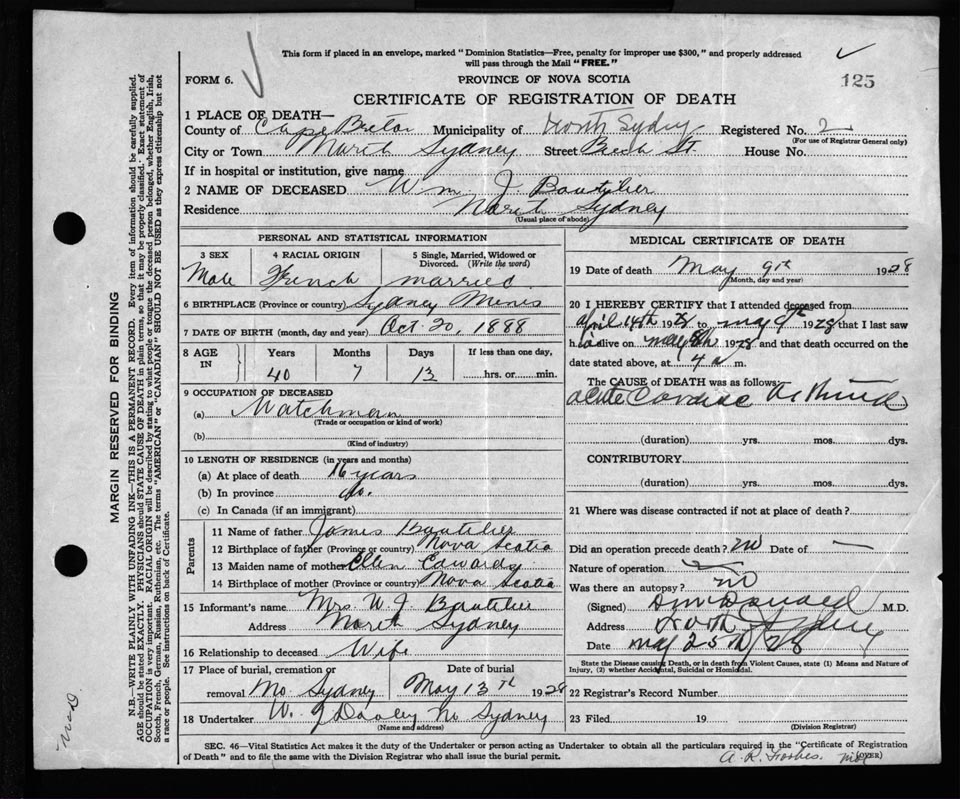 This form if placed in an envelope, marked "Dominion Statistics—Free, penalty for improper use $300," and properly addressed
will pass through the Mail "FREE."
FORM 6.
PROVINCE OF NOVA SCOTIA
125
CERTIFICATE OF REGISTRATION OF DEATH
1 PLACE OF DEATH—
County of Cape Breton Municipality of North Sydney Registered No. 2
(For use of Registrar General only)
City or Town North Sydney Street Beech St. House No.
If in hospital or institution, give name
2 NAME OF DECEASED Wm. J. Boutilier
Residence North Sydney
(Usual place of abode)
PERSONAL AND STATISTICAL INFORMATION
3 SEX 4 RACIAL ORIGIN 5 Single, Married, Widowed or
Divorced. (Write the word)
Male French married
6 BIRTHPLACE (Province or country) Sydney Mines
7 DATE OF BIRTH (month, day and year) Oct 20, 1888
8 AGE IN Years Months Days If less than one day,
40 7 13 hrs. or min.
9 OCCUPATION OF DECEASED
(a) Watchman
(Trade or occupation or kind of work)
(b)
(Kind of industry)
10 LENGTH OF RESIDENCE (in years and months)
(a) At place of death 16 years
(b) In province do.
(c) In Canada (if an immigrant)
Parents
11 Name of father James Boutilier
12 Birthplace of father (Province or country) Nova Scotia
13 Maiden name of mother Ellen Edwards
14 Birthplace of mother (Province or country) Nova Scotia
15 Informant's name Mrs. W. J. Boutilier
Address North Sydney
16 Relationship to deceased Wife
17 Place of burial, cremation or removal No. Sydney Date of burial May 13th 1928
18 Undertaker W. J. Dooley No Sydney
(Name and address)
MEDICAL CERTIFICATE OF DEATH
19 Date of death May 9th 1928
(Month, day and year)
20 I HEREBY CERTIFY that I attended deceased from
april 14th 1928 to may 9th 1928 that I last saw
h alive on may 8th 1928 and that death occurred on the
date stated above, at 4 a m.
The CAUSE of DEATH was as follows:
acute Cardiac
(duration) yrs. mos. dys.
CONTRIBUTORY
(duration) yrs. mos. dys.
21 Where was disease contracted if not at place of death?
Did an operation precede death? no Date of —
Nature of operation
Was there an autopsy? no
(Signed) McDonald M.D.
Address North Sydney
Date may 25th/28
State the Disease causing Death, or in death from Violent Causes, state (1) Means and Nature of
Injury, (2) whether Accidental, Suicidal or Homicidal.
22 Registrar's Record Number
23 Filed 19
(Division Registrar)
SEC. 46—Vital Statistics Act makes it the duty of the Undertaker or person acting as Undertaker to obtain all the particulars required in the "Certificate of Registration
of Death" and to file the same with the Division Registrar who shall issue the burial permit.
A. R. Forbes.
(OVER)
MARGIN RESERVED FOR BINDING
N.B.—WRITE PLAINLY WITH UNFADING INK—THIS IS A PERMANENT RECORD. Every item of information should be carefully supplied.
AGE should be stated EXACTLY. PHYSICIANS should STATE CAUSE OF DEATH in plain terms, so that it may be properly classified. Exact statement of
OCCUPATION is very important. RACIAL ORIGIN will be described by stating to what people or tongue the deceased person belonged, whether English, Irish,
Scotch, French, German, Russian, Ruthenian, etc. The terms "AMERICAN" or "CANADIAN" SHOULD NOT BE USED as they express citizenship but not
a race or people. See instructions on back of Certificate.